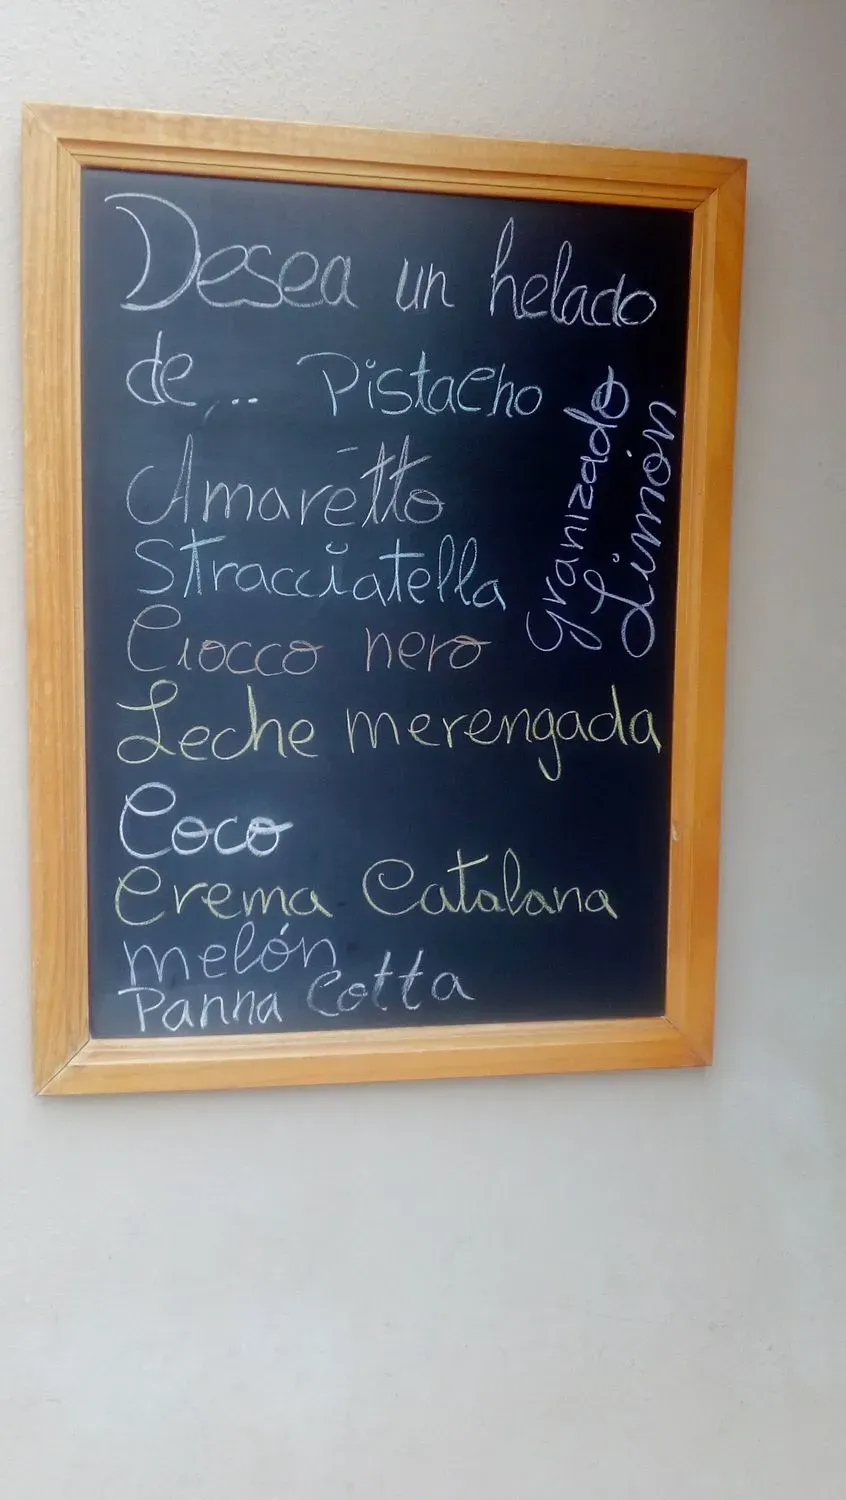 Desea un helado
de... Pistacho
Amaretto
Stracciatella
Ciocco nero
Leche merengada
Coco
Crema Catalana
melón
Panna Cotta
granizado
Limón